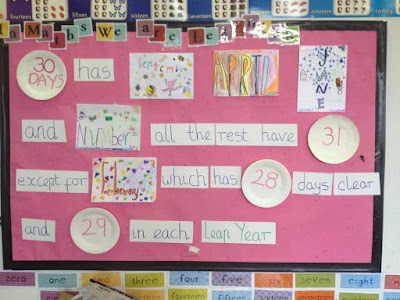 fourteen fifteen sixteen seventeen eighteen nineteen
In Maths We are Lear
30 DAYS has September APRIL JUNE
and November all the rest have 31
except for February which has 28 days clear
and 29 in each Leap Year
zero one two three four five six seven eight
thirteen fourteen fifteen sixteen